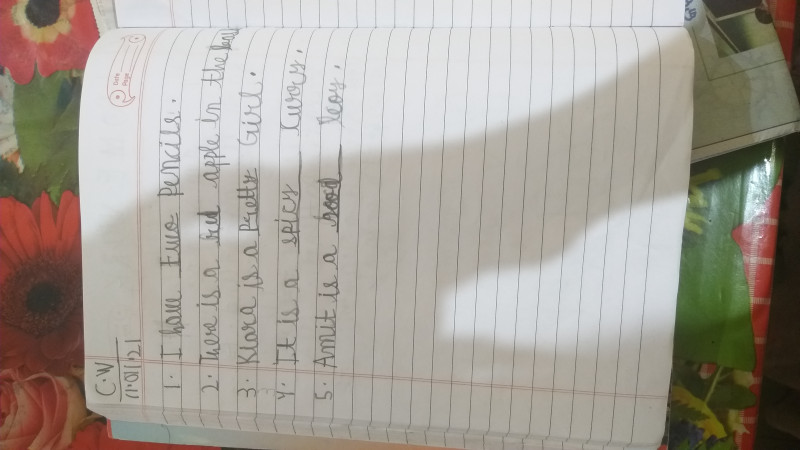 Date
Page
C.W
11.01.21
1. I have two pencils.
2. There is a red apple in the
3. Kiara is a Pretty Girl.
4. It is a spicy Curry.
5. Amit is a Boy.